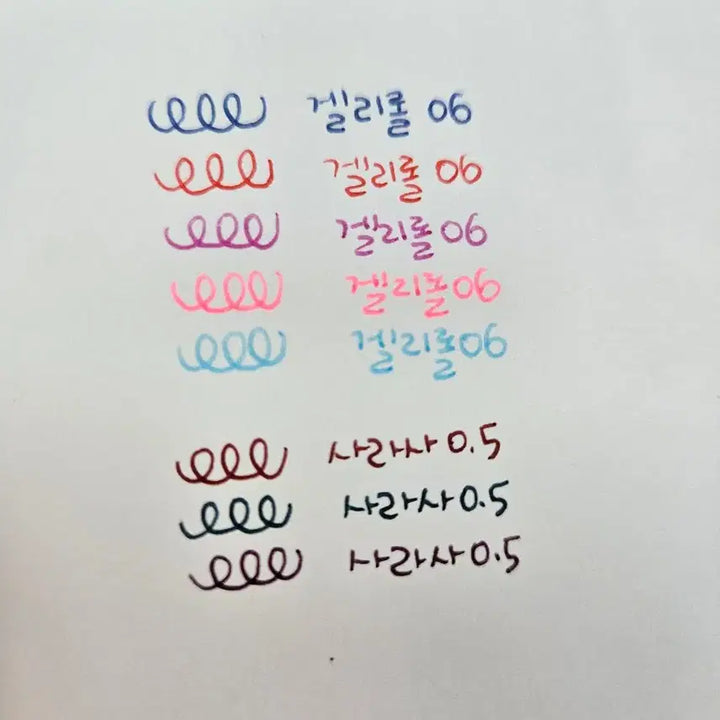 겔리롤 06
겔리롤 06
겔리롤 06
겔리롤 06
겔리롤 06
사라사 0.5
사라사 0.5
사라사 0.5